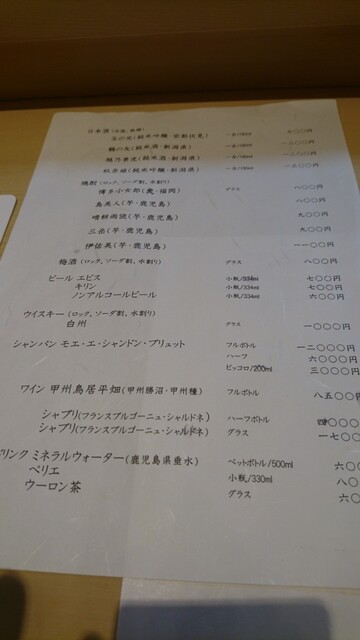 日本酒(冷酒、熱燗)
玉の光(純米吟醸・京都伏見) 一合/180ml
鶴の友(純米酒・新潟県) 一合/180ml 一二〇〇円
鶴乃寿虎(純米酒・新潟県) 一合/180ml
(純米吟醸・新潟県) 一合/180ml
焼酎(ロック、ソーダ割、水割り)
博多小女郎(麦・福岡) グラス 八〇〇円
島美人(芋・鹿児島) 八〇〇円
晴耕雨読(芋・鹿児島) 九〇〇円
三岳(芋・鹿児島) 九〇〇円
伊佐美(芋・鹿児島) 一一〇〇円
梅酒(ロック、ソーダ割、水割り) グラス 八〇〇円
ビール エビス 小瓶/334ml 七〇〇円
キリン 小瓶/334ml 七〇〇円
ノンアルコールビール 小瓶/334ml 六〇〇円
ウイスキー(ロック、ソーダ割、水割り)
白州 グラス 一〇〇〇円
シャンパン モエ・エ・シャンドン・ブリュット フルボトル 一二〇〇〇円
ハーフ 六〇〇〇円
ピッコロ/200ml 三〇〇〇円
ワイン 甲州鳥居平畑(甲州勝沼・甲州種) フルボトル 八五〇〇
シャブリ(フランスブルゴーニュ・シャルドネ) ハーフボトル 〇〇〇
シャブリ(フランスブルゴーニュ・シャルドネ) グラス 一七〇〇
リンク ミネラルウォーター(鹿児島県垂水) ペットボトル/500ml 六〇
ペリエ 小瓶/330ml 八〇
ウーロン茶 グラス 六〇